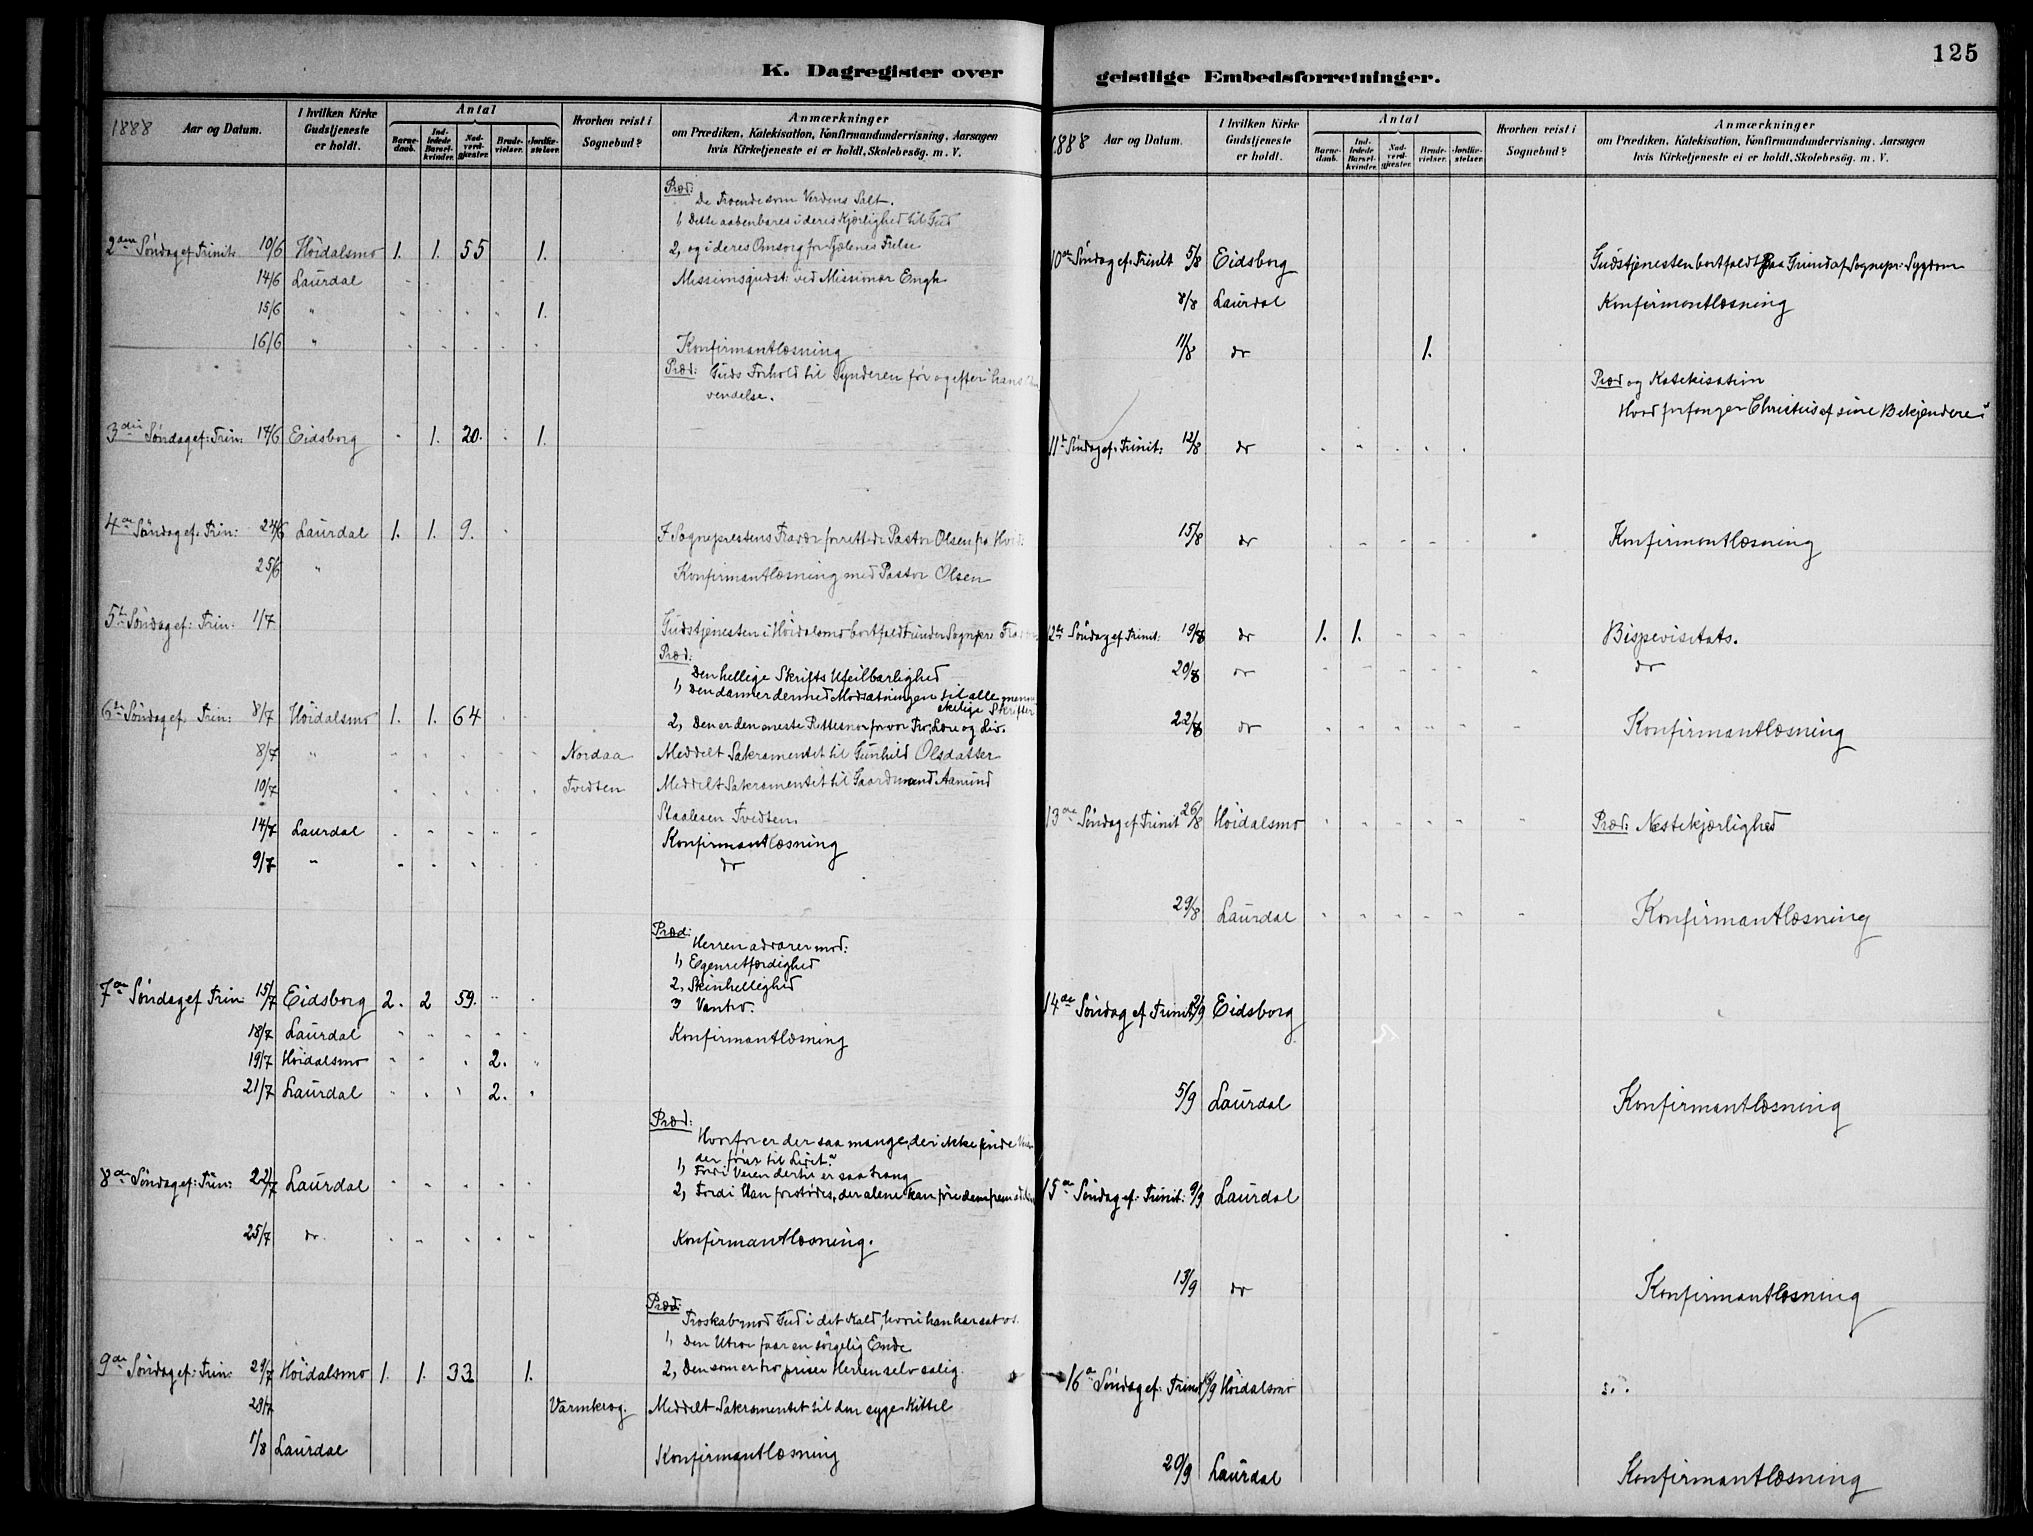 K. Dagregister over
1888 Aar og Datum.
I hvilken Kirke Gudstjeneste er holdt.
Antal
Barnedaab.
Indledede Barselkvinder.
Nadverdgjester.
Brudevielser.
Jordfæstelser.
Hvorhen reist i Sognebud?
Anmærkninger
om Prædiken, Katekisation, Konfirmandundervisning, Aarsagen
hvis Kirketjeneste ei er holdt, Skolebesög. m. V.
Præd:
De Troende som Verdens Salt.
1, Dette aabenbares i deres Kjærlighed til Gud
2den Søndag ef Trinit: 10/6 Höidalsmo 1. 1. 55 1. 2, og i deres Omsorg for Sjælenes Frelse
14/6 Laurdal Missionsgudst: ved Missionær Engh
15/6 " 1.
16/6 " Konfirmantlæsning
Præd: Guds Forhold til Synderen før og efter hans
vendelse.
3die Søndag ef: Trin: 17/6 Eidsborg 1. 20. 1.
4de Søndag ef. Trin: 24/6 Laurdal 1. 1. 9. I Sogneprestens Fravær forrettede Pastor Olsen fra Hvid:
25/6 " Konfirmantlæsning med Pastor Olsen
5te Søndag ef: Trin: 1/7 Gudstjenesten i Höidalsmo bortfaldt under Sognepr:
Præd:
Den hellige Skrifts Ufeilbarlighed
1, Den danner dermed Modsætningen til alle menne
skelige Skrifter
6te Søndag ef. Trin: 8/7 Höidalsmo 1. 1. 64 2, Den er den eneste Rettesnor for vor Tro, Lære og Liv.
8/7 " Nordaa Meddelt Sakramentet til Gunhild Olsdatter
10/7 Tvedten Meddelt Sakramentet til Gaardmand Aamund
Staalesen Tvedten.
14/7 Laurdal Konfirmantlæsning
9/7 " do
Præd:
Herren advarer mod:
1, Egenretfærdighed
2, Skinhellighed
7de Søndag ef Trin 15/7 Eidsborg 2. 2 59. 3 Vantro.
18/7 Laurdal Konfirmantlæsning
19/7 Höidalsmo 2.
21/7 Laurdal 2.
Præd:
Hvorfor er der saa mange, der ikke finde
der fører til Livet?
1, Fordi Veien dertil er saa trang
8de Søndag ef: Trin: 22/7 Laurdal 2, Fordi Han forstødes, der alene kan føre dem frem
25/7 do. Konfirmantlæsning.
Præd:
Troskab mod Gud i det Kald, hvori han har sat os.
1, Den Utro faar en sørgelig Ende
9de Søndag ef: Trin: 29/7 Höidalsmo 1. 1. 33 1. 2, Den som er tro priser Herren selv salig.
29/7 Varmkrog. Meddelt Sakramentet til den syge Kittel
1/8 Laurdal Konfirmantlæsning
125
geistlige Embedsforretninger.
1888 Aar og Datum.
I hvilken Kirke Gudstjeneste er holdt.
Antal
Barnedaab.
Indledede Barselkvinder.
Nadverdgjester.
Brudevielser.
Jordfæstelser.
Hvorhen reist i Sognebud?
Anmærkninger
om Prædiken, Katekisation, Konfirmandundervisning, Aarsagen
hvis Kirketjeneste ei er holdt, Skolebesög. m. V.
10de Søndag ef. Trinit 5/8 Eidsborg Gudstjenesten bortfaldt paa Grund af Sognepr: Sygdom
8/8 Laurdal Konfirmantlæsning
11/8 do 1.
Præd og Katekisation
Hvad forlanger Christus af sine Bekjendere?
11te Søndag ef. Trinit: 12/8 do
15/8 do Konfirmantlæsning
12te Søndag ef Trinit: 19/8 do 1. 1. Bispevisitats.
20/8 do do
22/8 do Konfirmantlæsning
13de Søndag ef Trinit 26/8 Höidalsmo Præd: Næstekjærlighed
29/8 Laurdal Konfirmantlæsning
14de Søndag ef Trinit 2/9 Eidsborg
5/9 Laurdal Konfirmantlæsning
15de Søndag ef: Trinit: 9/9 Laurdal
13/9 do Konfirmantlæsning
16de Søndag ef: Trinit 16/9 Höidalsmo
20/9 Laurdal Konfirmantlæsning